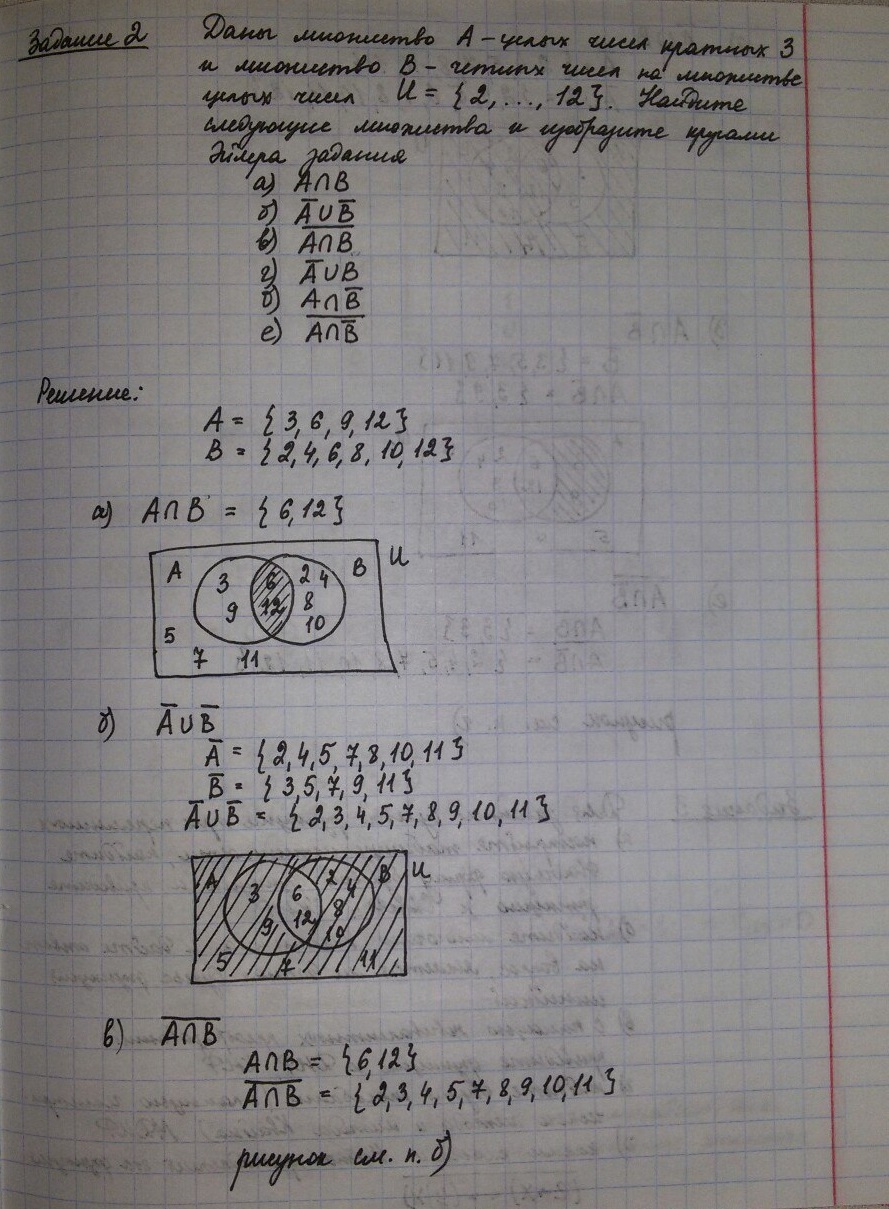 Задание 2 Даны множество A – целых чисел кратных 3
и множество B – четных чисел на множестве
целых чисел U = {2, ..., 12}. Найдите
следующие множества и изобразите кругами
Эйлера задания
а) A∩B
б) A̅∪B̅
в) \overline{A∩B}
г) A̅∪B
б) A∩B̅
е) \overline{A∩B̅}
Решение:
A = {3, 6, 9, 12}
B = {2, 4, 6, 8, 10, 12}
а) A∩B = {6, 12}
U
A 3 6 2 4 B
9 12 8
5 10
7 11
б) A̅∪B̅
A̅ = {2, 4, 5, 7, 8, 10, 11}
B̅ = {3, 5, 7, 9, 11}
A̅∪B̅ = {2, 3, 4, 5, 7, 8, 9, 10, 11}
A 2 B U
3 6 4
9 12 8
10
5 7 11
в) \overline{A∩B}
A∩B = {6, 12}
\overline{A∩B} = {2, 3, 4, 5, 7, 8, 9, 10, 11}
рисунок см. п. б)